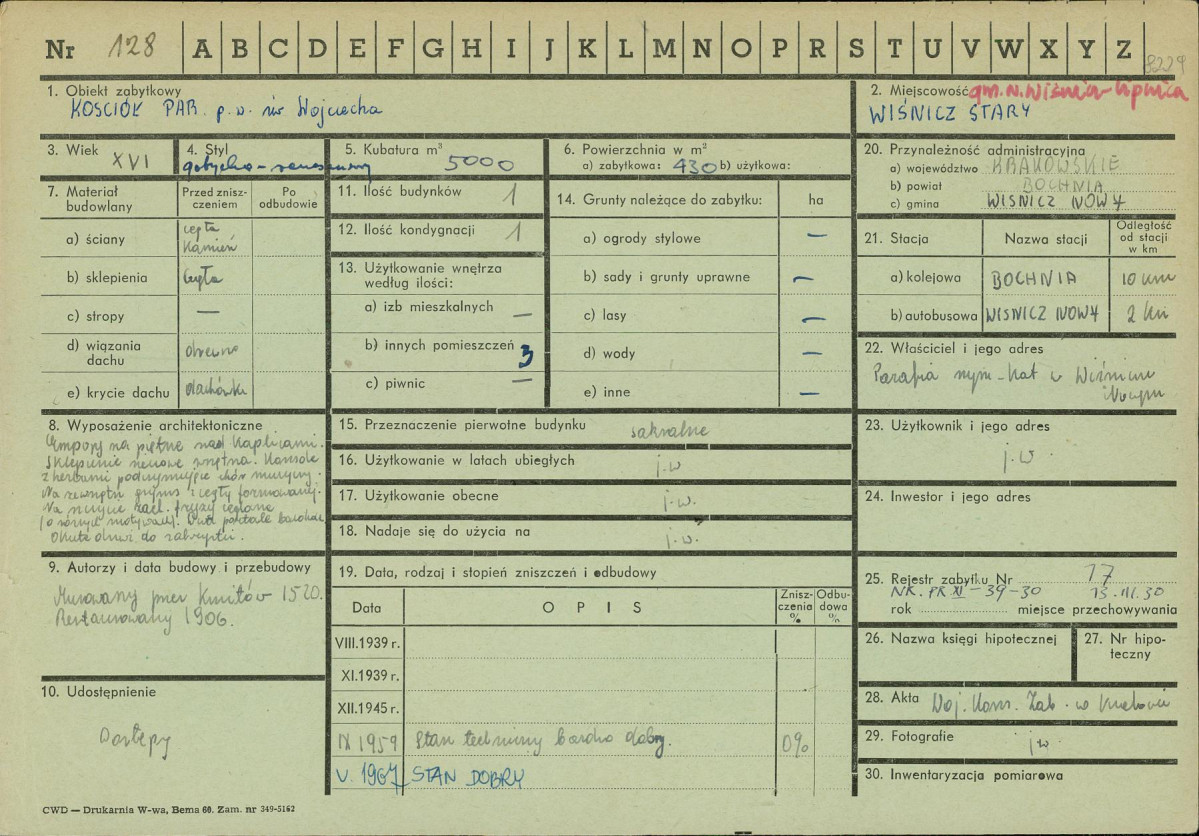 Nr 128 A B C D E F G H I J K L M N O P R S T U V W X Y Z
1. Obiekt zabytkowy
KOSCIÓŁ PAR. p.w. św Wojciecha
2. Miejscowość gm. N. Wiśnicz - Lipnica
WIŚNICZ STARY
3. Wiek
XVI
4. Styl
gotycko-renesansowy
5. Kubatura m³ 5000
6. Powierzchnia w m²
a) zabytkowa: 430 b) użytkowa:
7. Materiał budowlany
Przed zniszczeniem
Po odbudowie
a) ściany
cegła
Kamień
b) sklepienia
Cegła
c) stropy —
d) wiązania dachu
drewno
e) krycie dachu
dachówka
8. Wyposażenie architektoniczne
Empory na piętrze nad Kaplicami.
Sklepienie nerwowe wnętrza. Konsole
z herbami podtrzymujące chór muzyczny.
Na zewnątrz gzyms z cegły formowanej.
Na szczycie zach. fryzy ceglane
/o różnych motywach/. Dwa portale barokowe
Okute drzwi do zakrystii.
9. Autorzy i data budowy i przebudowy
Murowany przez Kmitów 1520.
Restaurowany 1906.
10. Udostępnienie
Dostępy
11. Ilość budynków 1
12. Ilość kondygnacji 1
13. Użytkowanie wnętrza
według ilości:
a) izb mieszkalnych —
b) innych pomieszczeń 3
c) piwnic —
14. Grunty należące do zabytku: ha
a) ogrody stylowe —
b) sady i grunty uprawne —
c) lasy —
d) wody —
e) inne —
15. Przeznaczenie pierwotne budynku sakralne
16. Użytkowanie w latach ubiegłych j.w
17. Użytkowanie obecne j.w.
18. Nadaje się do użycia na j.w.
19. Data, rodzaj i stopień zniszczeń i odbudowy
Data
OPIS
Zniszczenia %
Odbudowa %
VIII.1939 r.
XI.1939 r.
XII.1945 r.
IX 1959 Stan techniczny bardzo dobry. 0%
V. 1967 STAN DOBRY
20. Przynależność administracyjna
a) województwo KRAKOWSKIE
b) powiat BOCHNIA
c) gmina WISNICZ NOWY
21. Stacja
Nazwa stacji
Odległość od stacji w km
a) kolejowa BOCHNIA 10 km
b) autobusowa WISNICZ NOWY 2 km
22. Właściciel i jego adres
Parafia rzym-Kat w Wiśniczu
Nowym
23. Użytkownik i jego adres
j.w.
24. Inwestor i jego adres
25. Rejestr zabytku Nr 17
NR. PR XI-39-30 13.III.30
rok miejsce przechowywania
26. Nazwa księgi hipotecznej
27. Nr hipoteczny
28. Akta Woj. Kons. Zab. w Krakowie
29. Fotografie jw.
30. Inwentaryzacja pomiarowa
CWD — Drukarnia W-wa, Bema 60. Zam. nr 349-5162